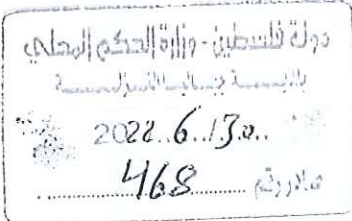 دولة فلسطين - وزارة الحكم المحلي
2022..6../30..
صادر رقم ....468....